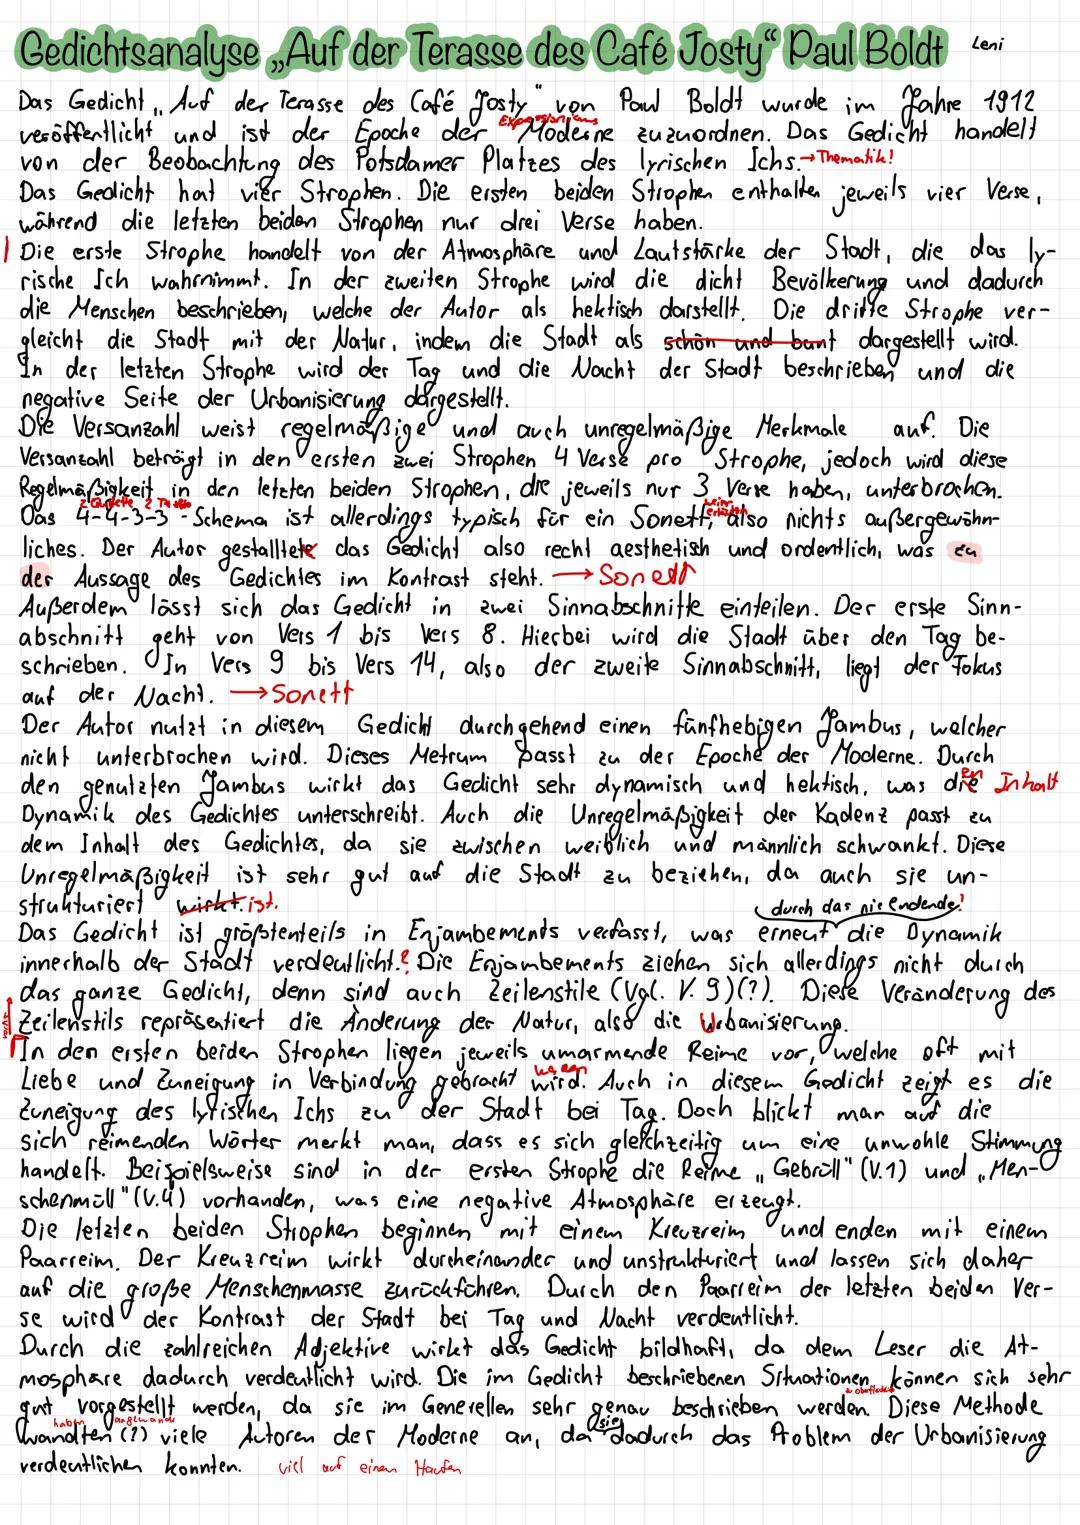 Gedichtsanalyse „Auf der Terasse des Café Josty“ Paul Boldt Leni
Das Gedicht „Auf der Terasse des Café Josty“ von Paul Boldt wurde im Jahre 1912
Expressionismus
veröffentlicht und ist der Epoche der Moderne zuzuordnen. Das Gedicht handelt
von der Beobachtung des Potsdamer Platzes des lyrischen Ichs. → Thematik!
Das Gedicht hat vier Strophen. Die ersten beiden Strophen enthalten jeweils vier Verse,
während die letzten beiden Strophen nur drei Verse haben.
Die erste Strophe handelt von der Atmosphäre und Lautstärke der Stadt, die das ly-
rische Ich wahrnimmt. In der zweiten Strophe wird die dicht Bevölkerung und dadurch
die Menschen beschrieben, welche der Autor als hektisch darstellt. Die dritte Strophe ver-
gleicht die Stadt mit der Natur, indem die Stadt als schön und bunt dargestellt wird.
In der letzten Strophe wird der Tag und die Nacht der Stadt beschrieben und die
negative Seite der Urbanisierung dargestellt.
Die Versanzahl weist regelmäßige und auch unregelmäßige Merkmale auf. Die
Versanzahl beträgt in den ersten zwei Strophen 4 Verse pro Strophe, jedoch wird diese
Regelmäßigkeit in den letzten beiden Strophen, die jeweils nur 3 Verse haben, unterbrochen.
2 Quartette 2 Terzette
Das 4-4-3-3-Schema ist allerdings typisch für ein Sonett, also nichts außergewöhn-
liches. Der Autor gestalltete das Gedicht also recht aesthetisch und ordentlich, was zu
der Aussage des Gedichtes im Kontrast steht. → Sonett
Außerdem lässt sich das Gedicht in zwei Sinnabschnitte einteilen. Der erste Sinn-
abschnitt geht von Vers 1 bis Vers 8. Hierbei wird die Stadt über den Tag be-
schrieben. In Vers 9 bis Vers 14, also der zweite Sinnabschnitt, liegt der Fokus
auf der Nacht. → Sonett
Der Autor nutzt in diesem Gedicht durchgehend einen fünfhebigen Jambus, welcher
nicht unterbrochen wird. Dieses Metrum passt zu der Epoche der Moderne. Durch
den genutzten Jambus wirkt das Gedicht sehr dynamisch und hektisch, was die en Inhalt
Dynamik des Gedichtes unterschreibt. Auch die Unregelmäßigkeit der Kadenz passt zu
dem Inhalt des Gedichtes, da sie zwischen weiblich und männlich schwankt. Diese
Unregelmäßigkeit ist sehr gut auf die Stadt zu beziehen, da auch sie un-
strukturiert wirkt. ist.
durch das nie Endende!
Das Gedicht ist größtenteils in Enjambements verfasst, was erneut die Dynamik
innerhalb der Stadt verdeutlicht.? Die Enjambements ziehen sich allerdings nicht durch
das ganze Gedicht, denn sind auch Zeilenstile (Vgl. V. 9)(?). Diese Veränderung des
Zeilenstils repräsentiert die Änderung der Natur, also die Urbanisierung.
In den ersten beiden Strophen liegen jeweils umarmende Reime vor, welche oft mit
Liebe und Zuneigung in Verbindung gebracht wird. Auch in diesem Gedicht zeigt es die
Zuneigung des lyrischen Ichs zu der Stadt bei Tag. Doch blickt man auf die
sich reimenden Wörter merkt man, dass es sich gleichzeitig um eine unwohle Stimmung
handelt. Beispielsweise sind in der ersten Strophe die Reime „Gebrüll“ (V.1) und „Men-
schenmüll“ (V.4) vorhanden, was eine negative Atmosphäre erzeugt.
Die letzten beiden Strophen beginnen mit einem Kreuzreim und enden mit einem
Paarreim. Der Kreuzreim wirkt durcheinander und unstrukturiert und lassen sich daher
auf die große Menschenmasse zurückführen. Durch den Paarreim der letzten beiden Ver-
se wird der Kontrast der Stadt bei Tag und Nacht verdeutlicht.
Durch die zahlreichen Adjektive wirkt das Gedicht bildhaft, da dem Leser die At-
mosphäre dadurch verdeutlicht wird. Die im Gedicht beschriebenen Situationen können sich sehr
gut vorgestellt werden, da sie im Generellen sehr genau beschrieben werden. Diese Methode
haben angewandt
wandten (?) viele Autoren der Moderne an, da sie dadurch das Problem der Urbanisierung
verdeutlichen konnten. viel auf einen Haufen